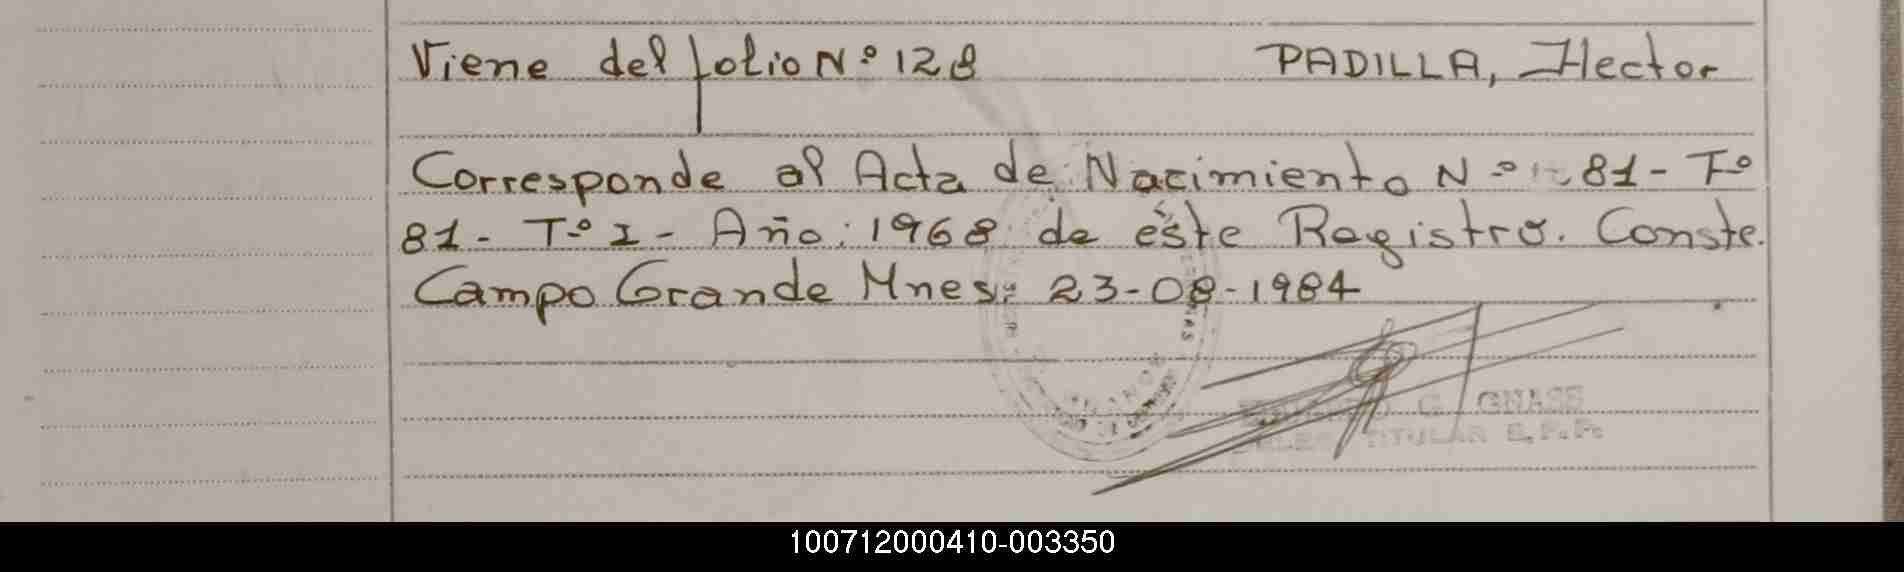 Viene del folio N° 128 PADILLA, Hector
Corresponde al Acta de Nacimiento N° 81 - F°
81 - T° I - Año: 1968 de éste Registro. Conste.
Campo Grande Mnes: 23-08-1984
G. GNASS
TITULAR
100712000410-003350